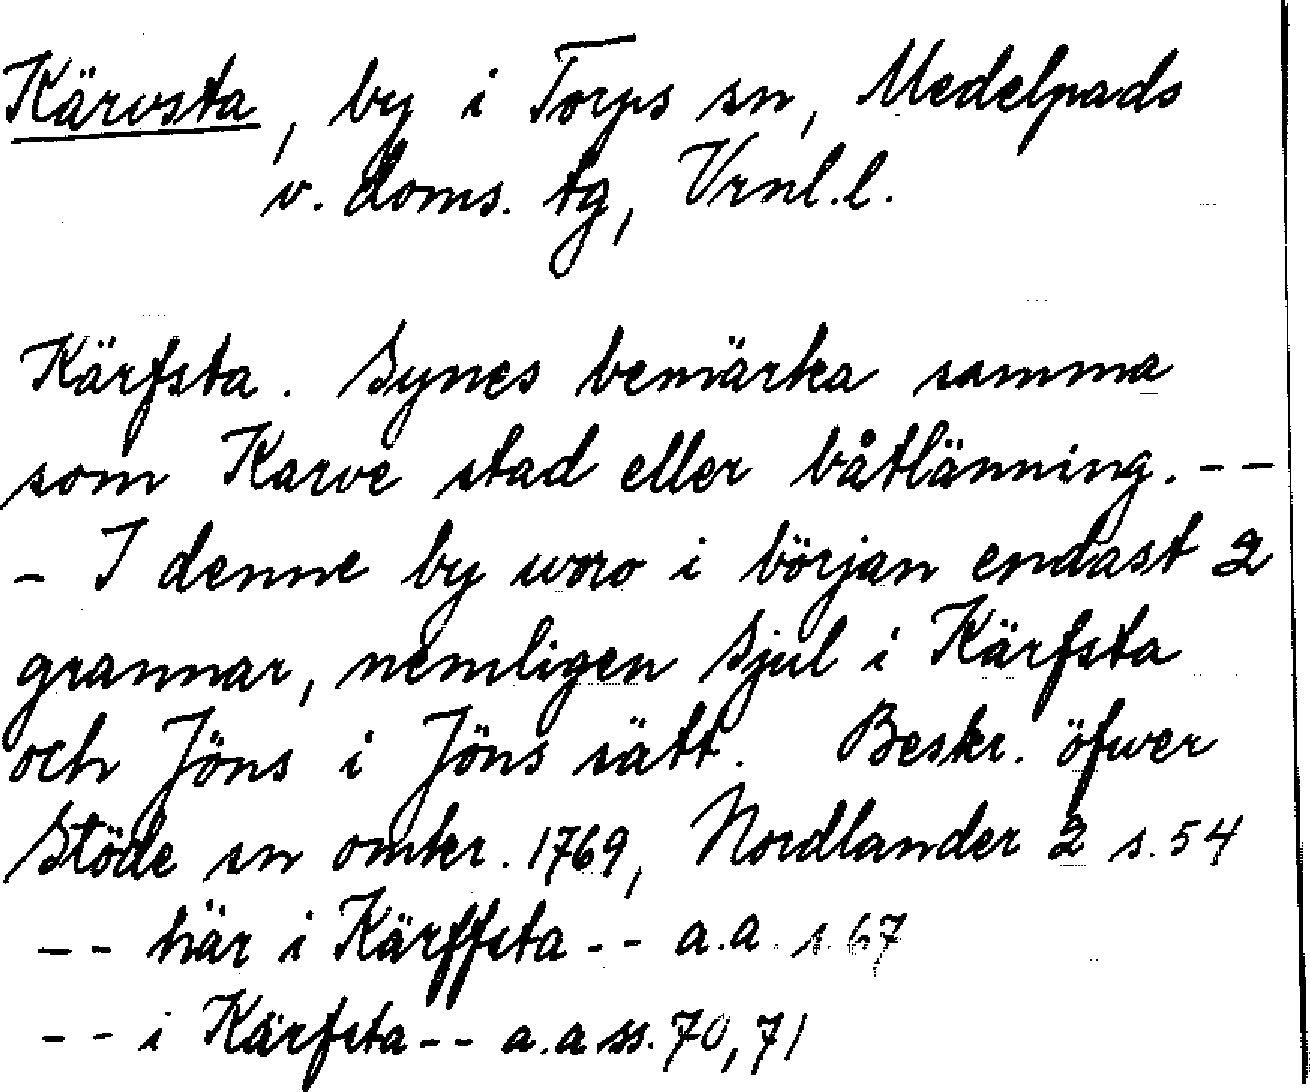 Kärvsta, by i Torps sn, Medelpads
v. doms. tg, Vrnl.l.
Kärfsta. Synes bemärka samma
som Karve stad eller båtlänning. --
- I denne by woro i början endast 2
grannar, nemligen Sjul i Kärfsta
och Jöns i Jöns sätt. Beskr. öfwer
Stöde sn omkr. 1769, Nordlander 2 s. 54
-- här i Kärffsta -- a.a. s. 67
-- i Kärfsta -- a.a ss. 70, 71